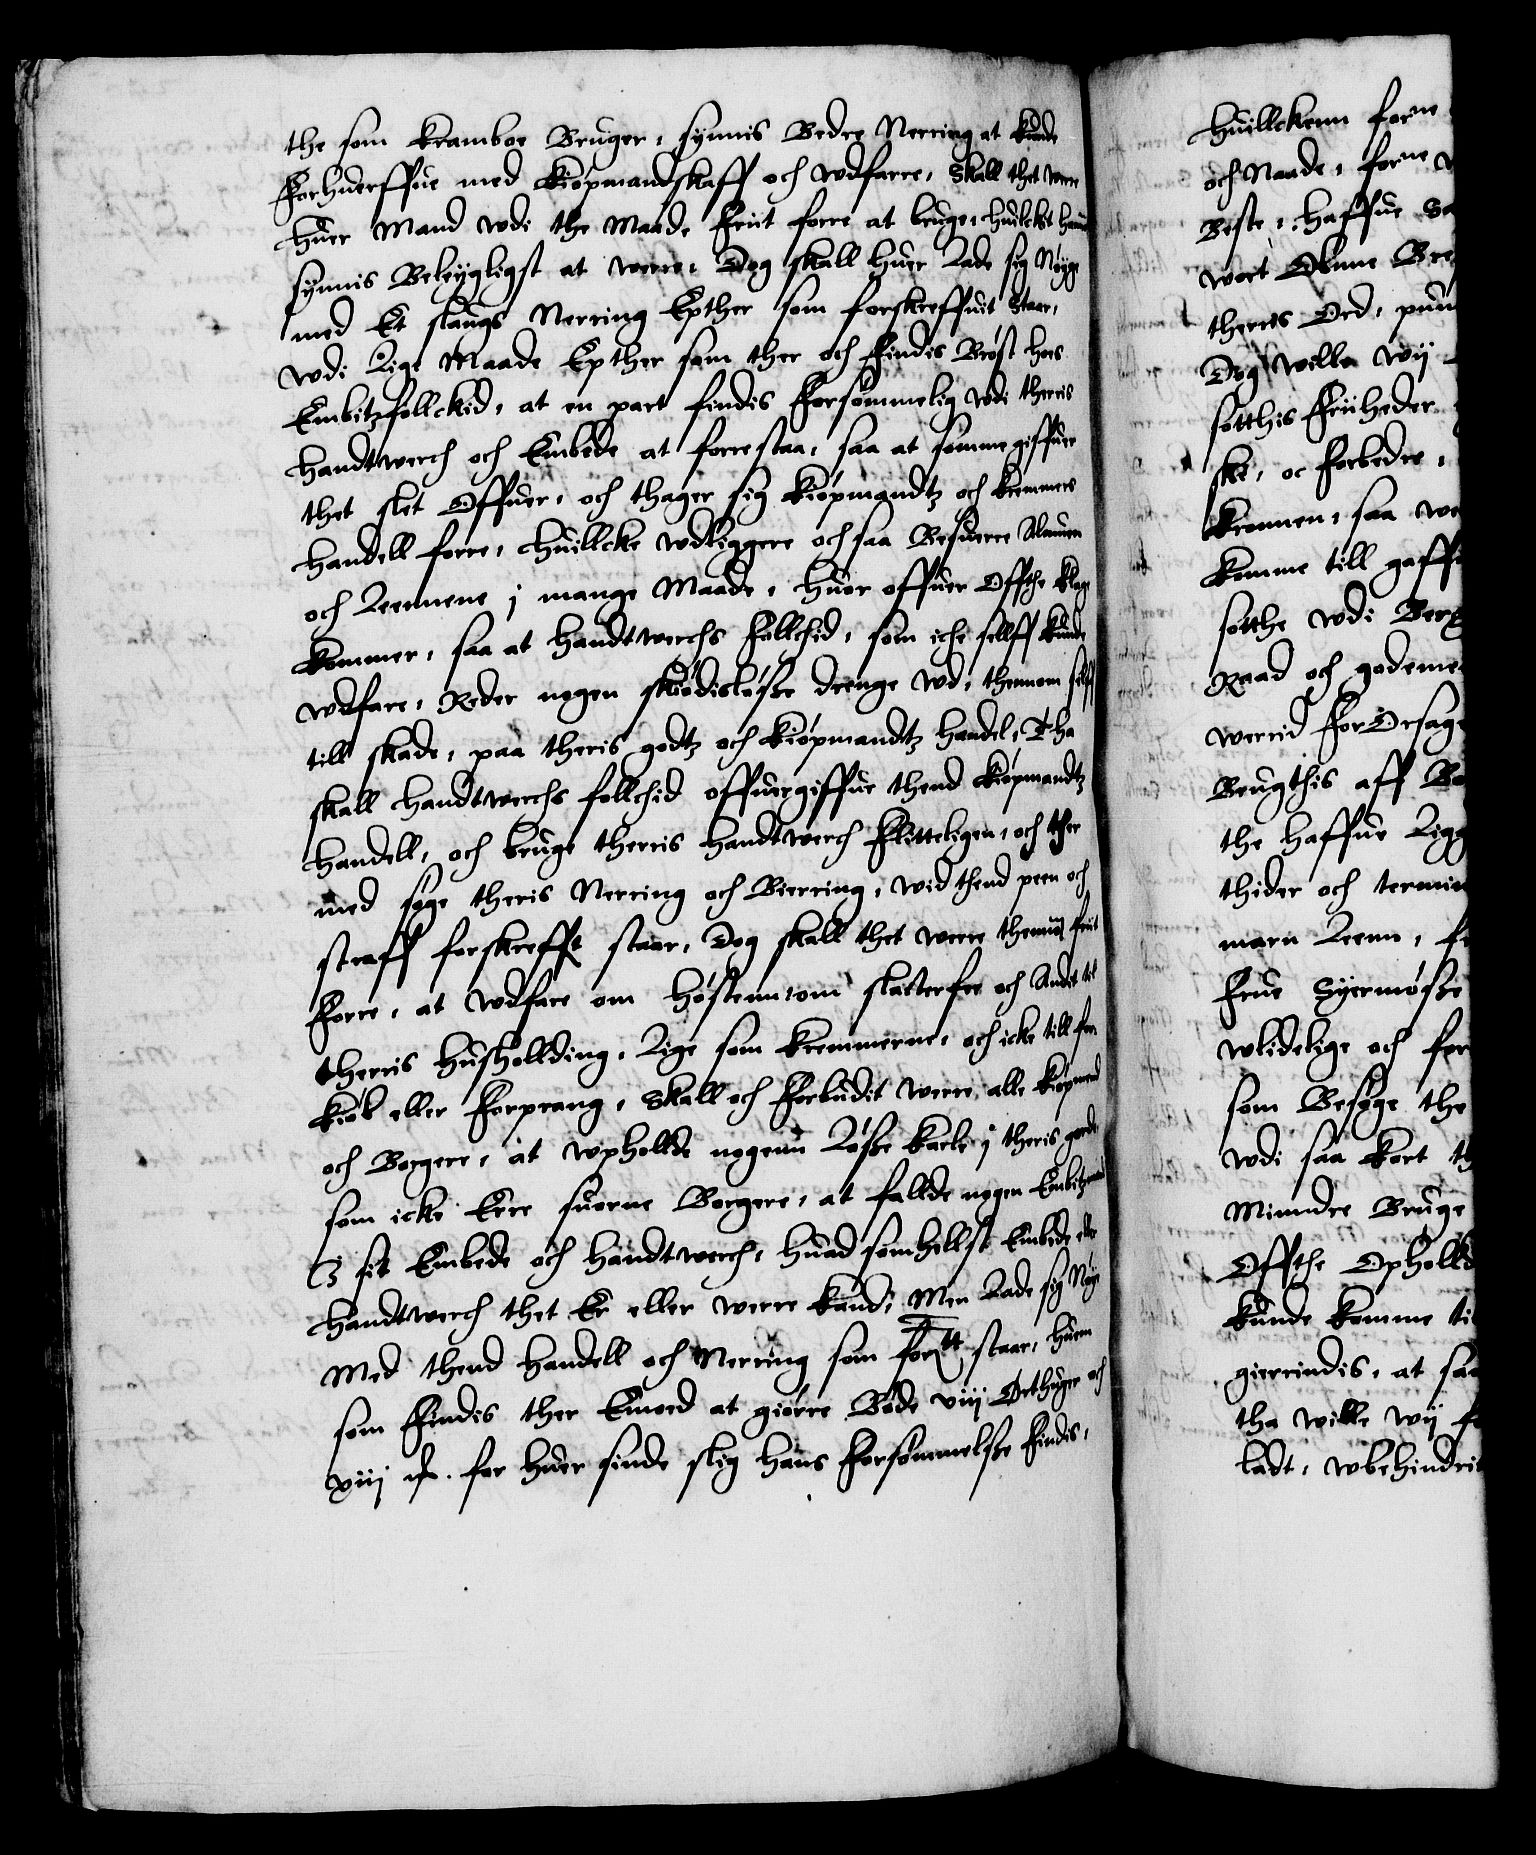 the som kramboe Bruger, synnis Bedre Nerring at kunde
forhuerffue med kiøpmandskaff och wdfarre, Skall thet were
huer Mand wdi the Maade friit forre at bruge, huilckit hannd
synnis Beleyligst at werre, Dog skall huer Lade sig Nøyge
med Et slaugs Nerring Epther som forskreffuit staar,
wdi Lige Maade Epther som ther och findis Brøst hoes
Embitzfollckid, at en part findis forsømmelig wdi theris
handtwerch och Embede at forrestaa, saa at somme giffuer
thet slet Offuer, och thager sig kiøpmandtz och kremmers
handell forre, huillcke wdliggere och saa Besuerre Almuen
och Leennene j mange Maade, huor offuer Offthe klage
kommer, saa at handtwerchs follchid, som iche sellff kunde
wdfare, Reder nogen skiødisløsse drenge wd, thennom sellff
till skade, paa theris godtz och kiøpmandtz handel, Tha
skall handtwerchs follchid offuergiffue thend kiøpmandtz
handell, och bruge therris handtwerch flitteligen, och ther
med søge theris Nerring och Bierring, wid thend peen och
straff forskrefft staar, Dog skall thet were thennom friit
forre, at wdfare om høstenn, om slacterfee och Andet til
therris husholldning, Lige som kremmerne, och icke till for
kiøb eller forprang, Skall och forbudit werre alle kiøpmend
och Borgere, at wpholde nogenn Løsse karle j theris gorde
som icke Erre suorne Borgere, at fallde nogen Embitzmand
J sit Embede och handtwerch, huad somhellst Embede eller
handtwerch thet Er eller werre kand, Men Lade sig Nøye
Med thend handell och Nerring som forsktt staar, huem
som findis ther Emoed at giørre Bøde viij Ørthuger och
xiij ß. for huer sinde slig hans forsømmelsse findis,
huillckenn forne
och Naade, forne
Beste, haffue
wort Obnne
therris Ord,
Dog wille wij
sotthis friiheder
ske, oc forbedre,
kronnen, saa
komme till
sotthe wdi
Raad och
werrid forOrsage
Brugthis aff
the haffue
thider och
marn Leenn,
frue
wlidelige och
som Besøge the
wdi saa kort
Minndre Bruge
Offthe Ophold
kunde komme
gierrindis, at
tha wille wij
ladt, wbehindrit